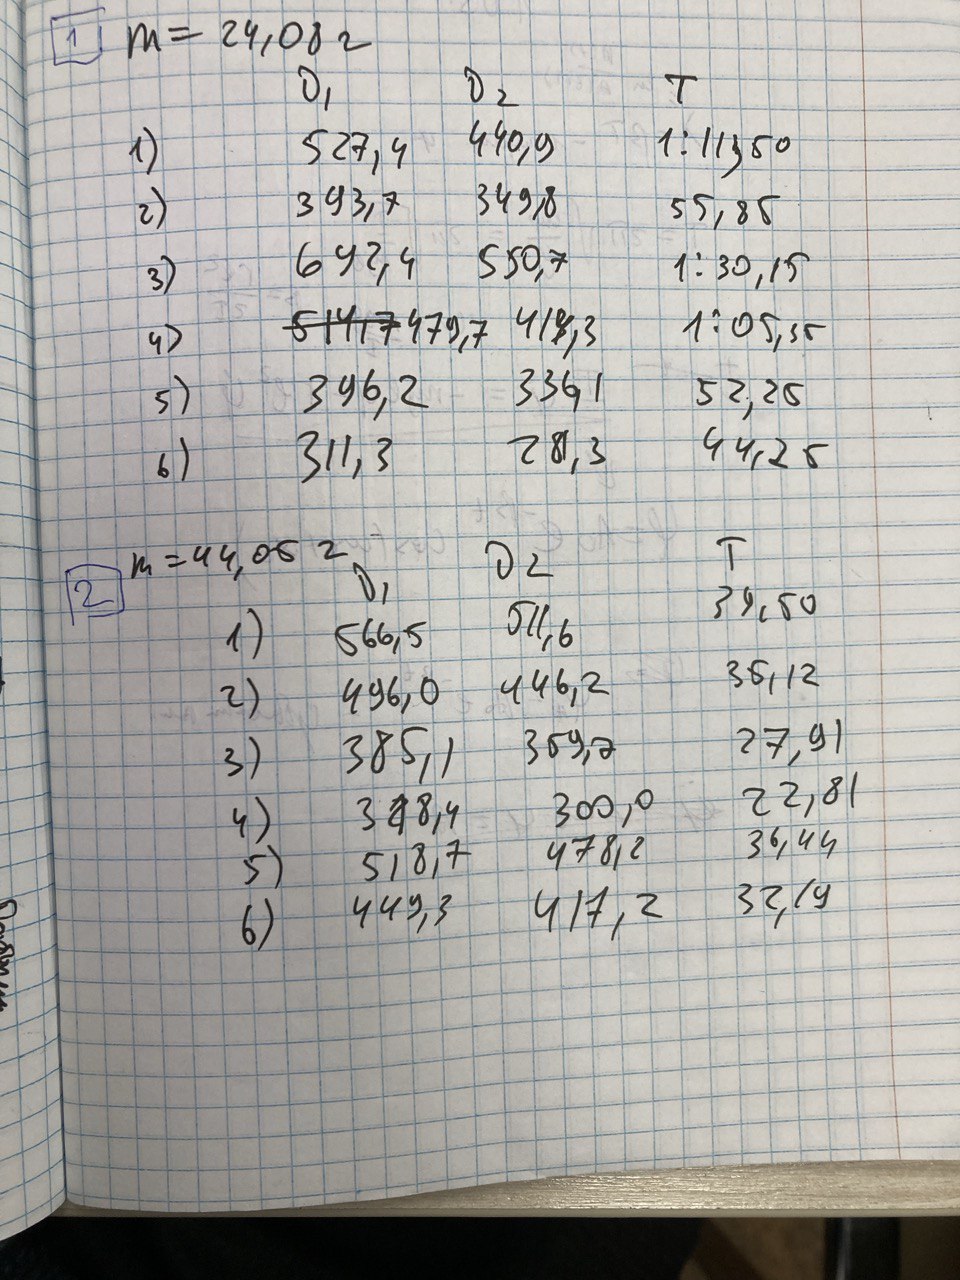 1 m = 24,08 г
D1 D2 T
1) 527,4 440,9 1:11,50
2) 393,7 349,8 55,85
3) 692,4 550,7 1:30,15
4) 514,7 479,7 419,3 1:05,35
5) 396,2 336,1 52,25
6) 311,3 281,3 44,25
2 m = 44,05 г
D1 D2 T
1) 566,5 511,6 39,50
2) 496,0 446,2 35,12
3) 385,1 359,7 27,91
4) 318,4 300,0 22,81
5) 518,7 478,2 36,44
6) 449,3 417,2 32,19